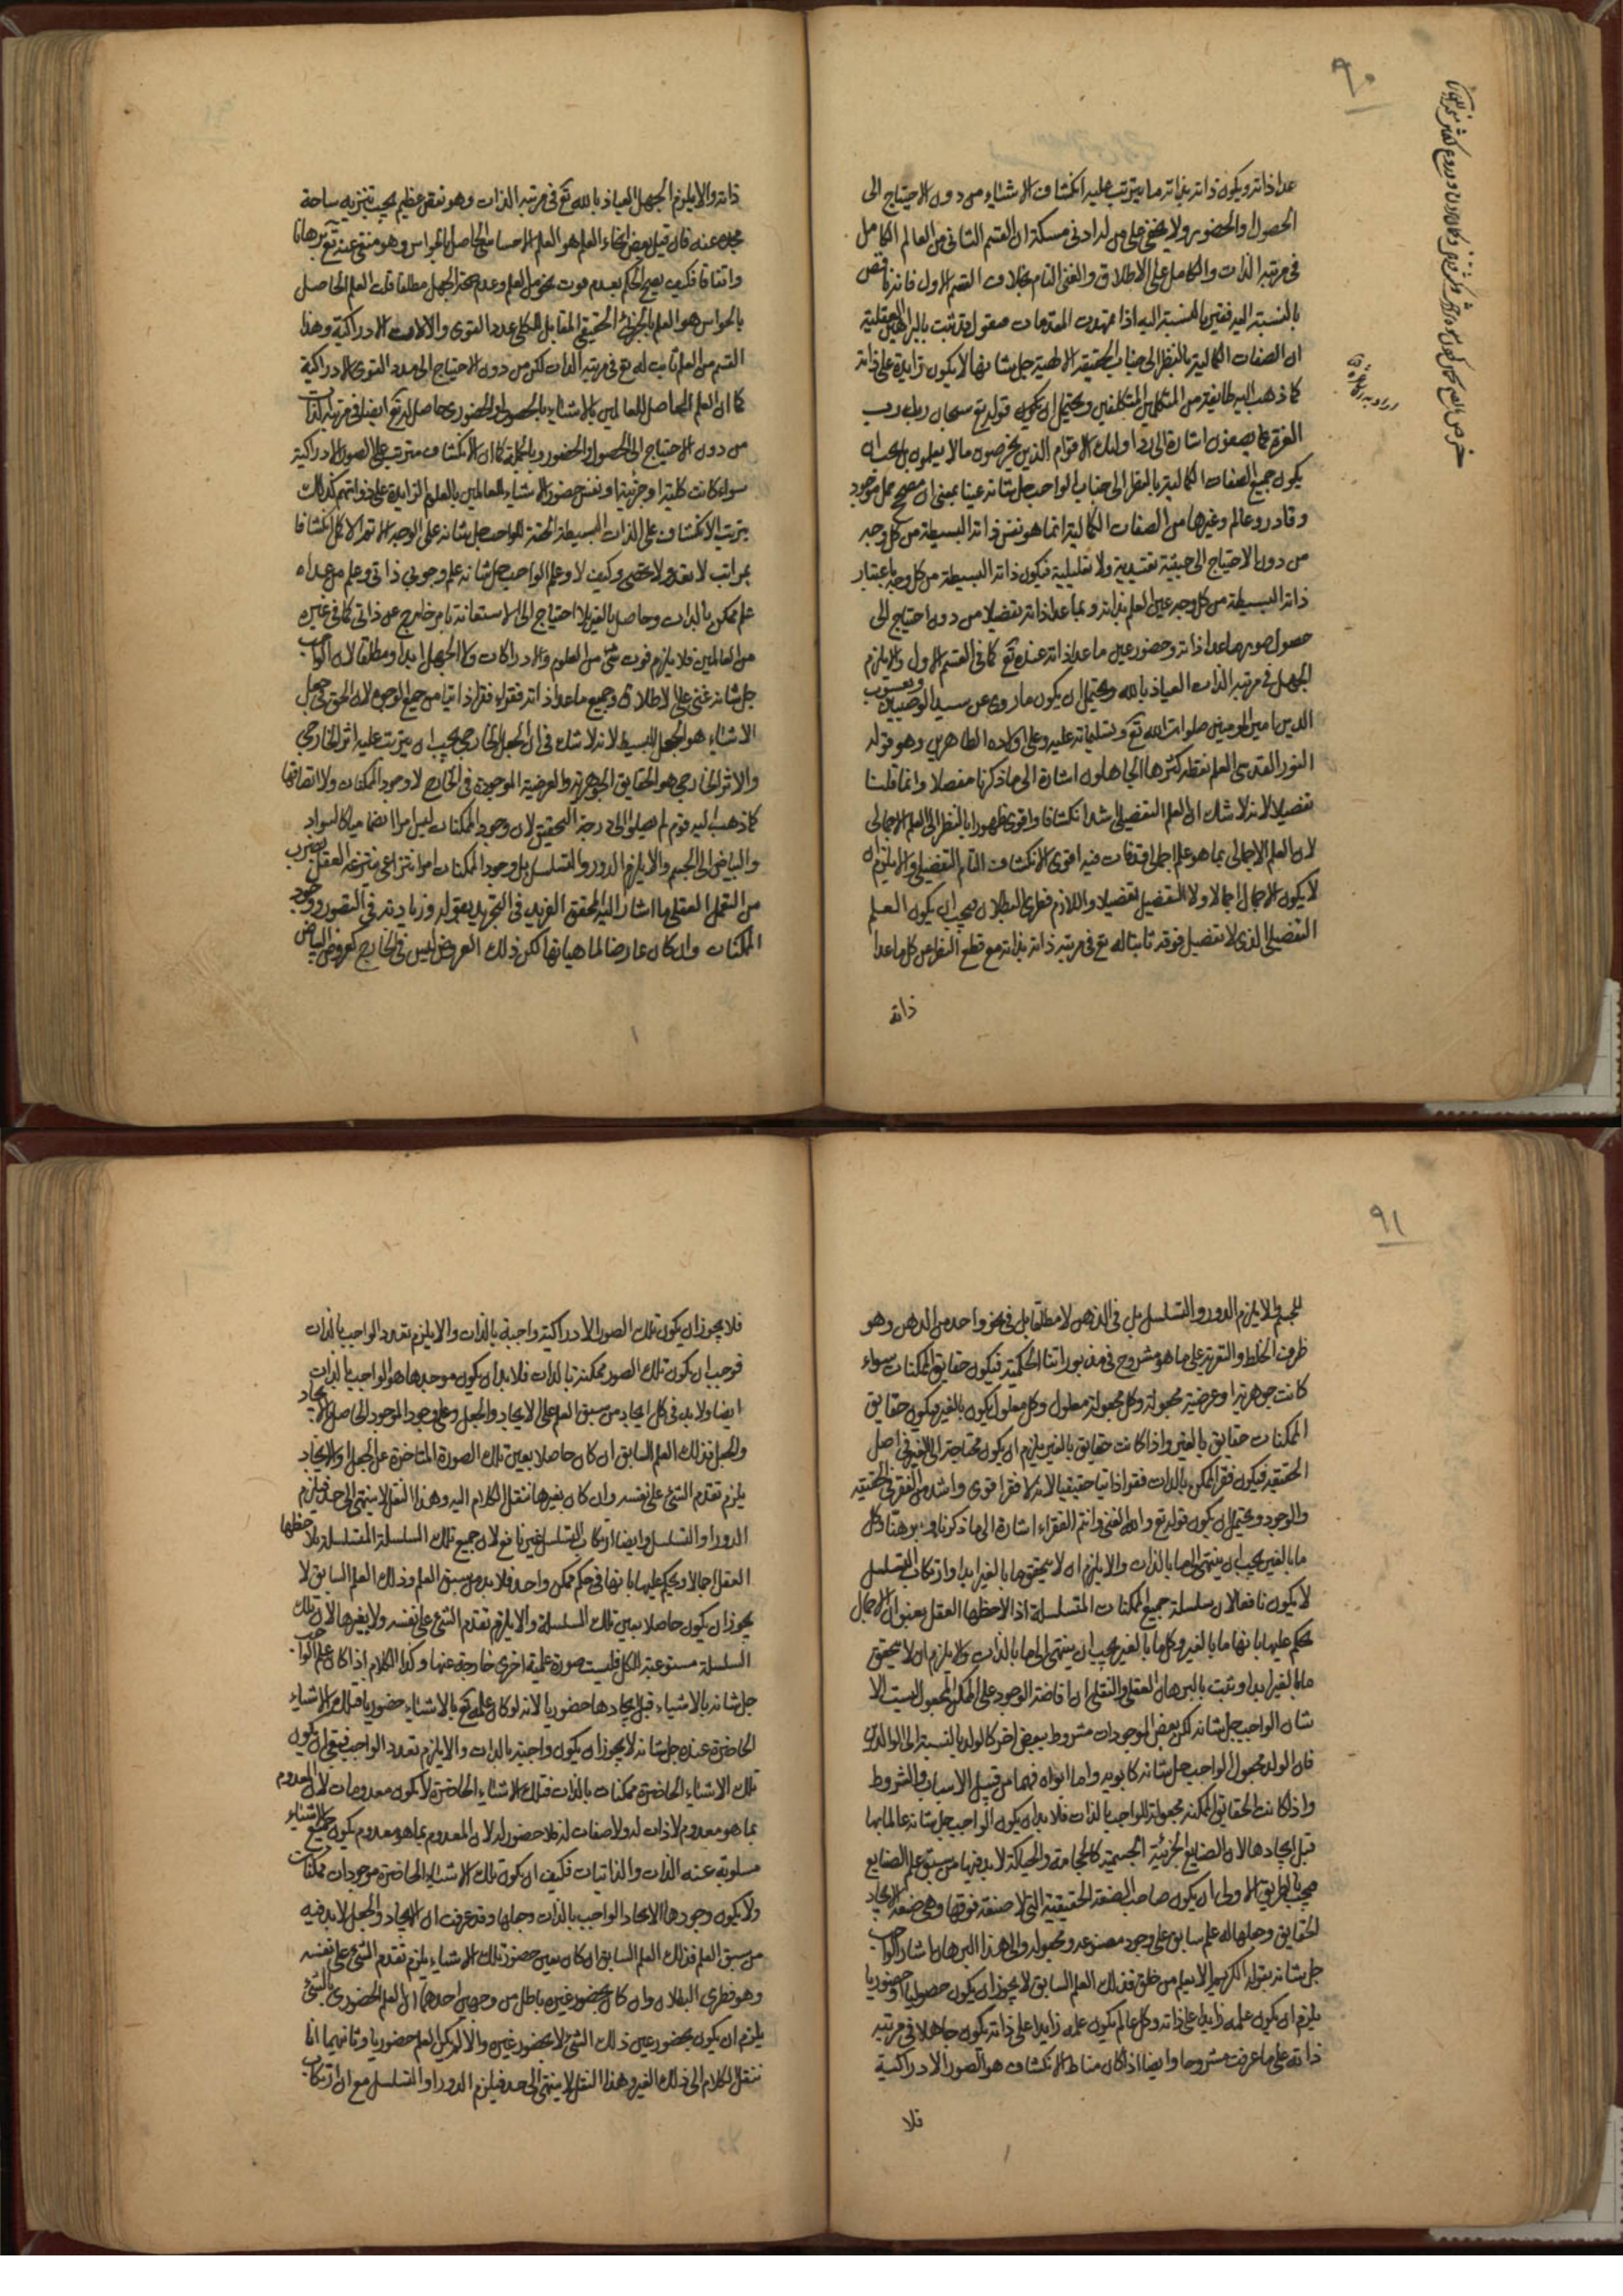 ٩٠
عدا ذاته ويكون ذاته بذاته ما يترتب عليه انكشاف الاشياء من دون الاحتياج الى
الحصول والحضور ولا يخفى على من له ادنى مسكة ان القسم الثانى من العالم الكامل
فى مرتبة الذات والكامل على الاطلاق والغنى التام بخلاف القسم الاول فانه ناقص
بالنسبة اليه فقير بالنسبة اليه اذا تمهدت المقدمات فنقول قد ثبت بالبراهين العقلية
ان الصفات الكمالية بالنظر الى جناب الحقيقة الالهية جل شانها لا يكون زايدة على ذاته
كما ذهب اليه طايفة من المتكلمين المتكلفين ويحتمل ان يكون قوله تع سبحان ربك رب
العزة عما يصفون اشارة الى رد اولئك الاقوام الذين يخرصون ما لا يعلمون بل يجب ان
يكون جميع الصفات الكمالية بالنظر الى جناب الواجب جل شانه عينا بمعنى ان مصحح حمل موجود
وقادر وعالم وغيرها من الصفات الكمالية انما هو نفس ذاته البسيطة من كل وجه
من دون الاحتياج الى حيثية تقييدية ولا تعليلية فيكون ذاته البسيطة من كل وجه باعتبار
ذاته البسيطة من كل وجه عين العلم بذاته وبما عدا ذاته تفصيلا من دون احتياج الى
حصول صورها عدا ذاته وحضور عين ما عدا ذاته عنده تع كما فى القسم الاول والا يلزم
الجهل فى مرتبة الذات العياذ بالله ويحتمل ان يكون ما روى عن سيد الوصيين ويعسوب
الدين امير المومنين صلوات الله تع وتسليماته عليه وعلى اولاده الطاهرين وهو قوله
النور القدسى العلم نقطة كثرها الجاهلون اشارة الى ما ذكرنا مفصلا وانما قلنا
تفصيلا لانه لا شك ان العلم التفصيلى اشد انكشافا واقوى ظهورا بالنظر الى العلم الاجمالى
لان العلم الاجمالى بما هو علم اجمالى قد فات فيه اقوى الانكشاف التام التفصيلى والا يلزم ان
لا يكون الاجمال اجمالا ولا التفصيل تفصيلا واللازم فطرى البطلان فيجب ان يكون العلم
التفصيلى الذى لا تفصيل فوقه ثابتا له تع فى مرتبة ذاته بذاته مع قطع النظر عن كل ما عدا
ذاته
ذاته والا يلزم الجهل العياذ بالله تع فى مرتبة الذات وهو نقص عظيم يجب تنزيه ساحة
مجده عنه فان قيل بعض انحاء العلم هو العلم الاحساسى الحاصل بالحواس وهو منتفى عنه تع برهانا
واتفاقا فكيف يصح الحكم بعدم فوت نحو من العلم وعدم صحة الجهل مطلقا قلت العلم الحاصل
بالحواس هو العلم بالجزئى الحقيقى المقابل للكلى عدد القوى والالات الادراكية وهذا
القسم من العلم ثابت له تع فى مرتبة الذات لكن من دون الاحتياج الى مدد القوى الادراكية
كما ان العلم الحاصل للعالمين بالاشياء بالحصول والحضورى حاصل له تع ايضا فى مرتبة الذات
من دون الاحتياج الى الحصول والحضور وبالجملة كما ان الانكشاف مترتب على الصور الادراكية
سواء كانت كلية او جزئية او نفس حضور الاشياء للعالمين بالعلوم الزايدة على ذواتهم كذلك
يترتب الانكشاف على الذات البسيطة الحقة للواجب جل شانه على الوجه الاتم الاكمل انكشافا
بمراتب لا تعد ولا تحصى وكيف لا وعلم الواجب جل شانه علم وجوبى ذاتى وعلم من عداه
علم ممكن بالذات وحاصل بالغير بلا احتياج الى الاستعانة بامر خارج عن ذاتى كما فى غيره
من العالمين فلا يلزم فوت شئ من العلوم والادراكات ولا الجهل ابدا ومطلقا لان الواجب
جل شانه غنى على الاطلاق وجميع ما عدا ذاته فقراء فقرا ذاتيا من جميع الوجوه لان الحق فى جعل
الاشياء هو الجعل البسيط لانه لا شك فى ان الجعل الخارجى يجب ان يترتب عليه اثر الخارجى
والاثر الخارجى هو الحقايق الجوهرية والعرضية الموجودة فى الخارج لا وجود الممكنات ولا اتصافها
كما ذهب اليه قوم لم يصلوا الى درجة التحقيق لان وجود الممكنات ليس امرا انضماميا كالسواد
والبياض الى الجسم والا يلزم الدور والتسلسل بل وجود الممكنات امر انتزاعى ينتزعه العقل بضرب
من التعمل العقلى ما اشار اليه المحقق الفريد فى التجريد بقوله وزيادته فى التصور ووجود
الممكنات وان كان عارضا لماهياتها لكن ذلك العروض ليس فى الخارج كعروض البياض
٩١
للجسم والا يلزم الدور والتسلسل بل فى الذهن لا مطلقا بل فى نحو واحد من الذهن وهو
ظرف الخلط والتعرية على ما هو مشروح فى مزبوراتنا الحكمية فيكون حقايق الممكنات سواء
كانت جوهرية او عرضية مجعولة وكل مجعولة معلول وكل معلول يكون بالغير فيكون حقايق
الممكنات حقايق بالغير واذا كانت حقايق بالغير يلزم ان يكون محتاجة الى الغير فى اصل
الحقيقة فيكون فقر الممكن بالذات فقرا ذاتيا حقيقيا لانه لا فقر اقوى واشد من الفقر فى الحقيقة
والوجود ويحتمل ان يكون قوله تع والله الغنى وانتم الفقراء اشارة الى ما ذكرنا وبرهنا وكل
ما بالغير يجب ان ينتهى الى ما بالذات والا يلزم ان لا يتحقق ما بالغير ابدا وارتكاب التسلسل
لا يكون نافعا لان سلسلة جميع الممكنات المتسلسلة اذا لاحظها العقل بعنوان الاجمال
يحكم عليها بانها ما بالغير وكل ما بالغير يجب ان ينتهى الى ما بالذات والا يلزم ان لا يتحقق
ما بالغير ابدا وثبت بالبرهان العقلى والنقلى ان افاضة الوجود على الممكن المجعول ليست الا
شان الواجب جل شانه لكن بعض الموجودات مشروط ببعض اخر كالولد بالنسبة الى الوالدين
فان الولد مجعول الواجب جل شانه كابويه واما ابواه فهما من قبيل الاسباب والشروط
واذا كانت الحقايق الممكنة مجعولة للواجب بالذات فلا بد ان يكون الواجب جل شانه عالما بها
قبل ايجادها لان الصنايع الجزئية الجسمية كالحجامة والحياكة لا بد فيها من سبق علم الصنايع
فيجب بالطريق الاولى ان يكون صاحب الصنعة الحقيقية التى لا صنعة فوقها وهى صنعة الايجاد
الحقايق وجعلها له علم سابق على وجود مصنوعه ومجعوله والى هذا البرهان اشار الواجب
جل شانه بقوله الكريم الا يعلم من خلق فذلك العلم السابق لا يجوز ان يكون حصوليا وحضوريا
يلزم ان يكون علمه زايدا على ذاته وكل عالم يكون علمه زايدا على ذاته يكون جاهلا فى مرتبة
ذاته على ما عرفت مشروحا وايضا اذا كان مناط الانكشاف هو الصور الادراكية
فلا
فلا يجوز ان يكون تلك الصور الادراكية واجبة بالذات والا يلزم تعدد الواجب بالذات
فوجب ان يكون تلك الصور ممكنة بالذات فلا بد ان يكون موجدها هو الواجب بالذات
ايضا ولا بد فى كل ايجاد من سبق العلم على الايجاد والجعل وعلى وجود الموجود الحاصل بالايجاد
والجعل فذلك العلم السابق ان كان حاصلا بعين تلك الصورة المتاخرة عن الجعل والايجاد
يلزم تقدم الشئ على نفسه وان كان بغيرها ننقل الكلام اليه وهذا النقل لا ينتهى الى حد فيلزم
الدور او التسلسل وايضا ارتكاب التسلسل غير نافع لان جميع تلك السلسلة المتسلسلة يلاحظها
العقل اجمالا ويحكم عليها بانها فى حكم ممكن واحد فلا بد من سبق العلم وذلك العلم السابق لا
يجوز ان يكون حاصلا بعين تلك السلسلة والا يلزم تقدم الشئ على نفسه ولا بغيرها لان تلك
السلسلة مستوعبة الكل فليست صورة علمية اخرى خارجة عنها وكذا الكلام اذا كان علم الواجب
جل شانه بالاشياء قبل ايجادها حضوريا لانه لو كان علمه تع بالاشياء حضوريا فتلك الاشياء
الحاضرة عنده جل شانه لا يجوز ان يكون واجبة بالذات والا يلزم تعدد الواجب فبقى ان يكون
تلك الاشياء الحاضرة ممكنات بالذات فتلك الاشياء الحاضرة لا يكون معدومات لان المعدوم
بما هو معدوم لا ذات له ولا صفات له فلا حضور له لان المعدوم بما هو معدوم يكون جميع الاشياء
مسلوبة عنه الذات والذاتيات فكيف ان يكون تلك الاشياء الحاضرة موجودات ممكنات
ولا يكون وجودها الا بايجاد الواجب بالذات وجعلها وقد عرفت ان الايجاد والجعل لا بد فيه
من سبق العلم فذلك العلم السابق ان كان بعين حضور تلك الاشياء يلزم تقدم الشئ على نفسه
وهو فطرى البطلان وان كان بحضور غيره باطل من وجهين احدهما ان العلم الحضورى بالشئ
يلزم ان يكون بحضور عين ذلك الشئ لا بحضور غيره والا لم يكن العلم حضوريا وثانيهما انا
ننقل الكلام الى ذلك الغير وهذا النقل لا ينتهى الى حد فيلزم الدور او التسلسل مع ان ارتكاب